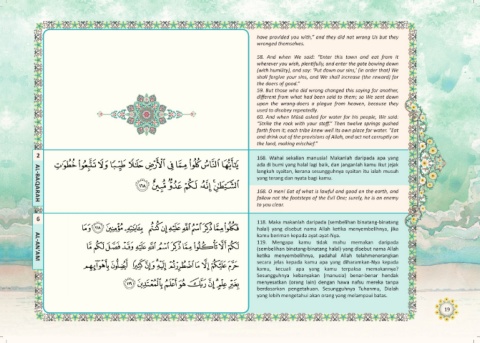 have provided you with," and they did not wrong Us but they
wronged themselves.
58. And when We said: "Enter this town and eat from it
wherever you wish, plentifully, and enter the gate bowing down
(with humility), and say: 'Put down our sins,' (in order that) We
shall forgive your sins, and We shall increase (the reward) for
the doers of good."
59. But those who did wrong changed this saying for another,
different from what had been said to them; so We sent down
upon the wrong-doers a plague from heaven, because they
used to disobey repeatedly.
60. And when Mūsā asked for water for his people, We said:
"Strike the rock with your staff." Then twelve springs gushed
forth from it; each tribe knew well its own place for water. "Eat
and drink out of the provisions of Allah, and act not corruptly on
the land, making mischief."
2
AL-BAQARAH
يَٰٓأَيُّهَا ٱلنَّاسُ كُلُوا۟ مِمَّا فِى ٱلْأَرْضِ حَلَٰلًا طَيِّبًا وَلَا تَتَّبِعُوا۟ خُطُوَٰتِ
ٱلشَّيْطَٰنِ إِنَّهُۥ لَكُمْ عَدُوٌّ مُّبِينٌ ١٦٨
168. Wahai sekalian manusia! Makanlah daripada apa yang
ada di bumi yang halal lagi baik, dan janganlah kamu ikut jejak
langkah syaitan, kerana sesungguhnya syaitan itu ialah musuh
yang terang dan nyata bagi kamu.
168. O men! Eat of what is lawful and good on the earth, and
follow not the footsteps of the Evil One; surely, he is an enemy
to you clear.
6
AL-AN'AM
فَكُلُوا۟ مِمَّا ذُكِرَ ٱسْمُ ٱللَّهِ عَلَيْهِ إِن كُنتُم بِـَٔايَٰتِهِۦ مُؤْمِنِينَ ١١٨ وَمَا
لَكُمْ أَلَّا تَأْكُلُوا۟ مِمَّا ذُكِرَ ٱسْمُ ٱللَّهِ عَلَيْهِ وَقَدْ فَصَّلَ لَكُم مَّا
حَرَّمَ عَلَيْكُمْ إِلَّا مَا ٱضْطُرِرْتُمْ إِلَيْهِ وَإِنَّ كَثِيرًا لَّيُضِلُّونَ بِأَهْوَآئِهِم
بِغَيْرِ عِلْمٍ إِنَّ رَبَّكَ هُوَ أَعْلَمُ بِٱلْمُعْتَدِينَ ١١٩
118. Maka makanlah daripada (sembelihan binatang-binatang
halal) yang disebut nama Allah ketika menyembelihnya, jika
kamu beriman kepada ayat-ayat-Nya.
119. Mengapa kamu tidak mahu memakan daripada
(sembelihan binatang-binatang halal) yang disebut nama Allah
ketika menyembelihnya, padahal Allah telahmenerangkan
secara jelas kepada kamu apa yang diharamkan-Nya kepada
kamu, kecuali apa yang kamu terpaksa memakannya?
Sesungguhnya kebanyakan (manusia) benar-benar hendak
menyesatkan (orang lain) dengan hawa nafsu mereka tanpa
berdasarkan pengetahuan. Sesungguhnya Tuhanmu, Dialah
yang lebih mengetahui akan orang yang melampaui batas.
19